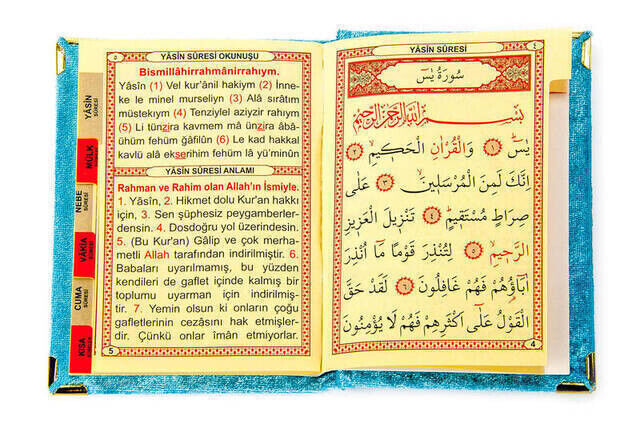 ٥
YÂSİN SÛRESİ OKUNUŞU
Bismillâhirrahmânirrahıym.
Yâsîn (1) Vel kur'ânil hakiym (2) İnne-
ke le minel murseliyn (3) Alâ sırâtım
müstekıym (4) Tenziylel aziyzir rahıym
(5) Li tünzira kavmem mâ ünzira âbâ-
ühüm fehüm gâfilûn (6) Le kad hakkal
kavlü alâ ekserihim fehüm lâ yü'minûn
YÂSİN SÛRESİ ANLAMI
Rahman ve Rahim olan Allah'ın İsmiyle.
1. Yâsîn, 2. Hikmet dolu Kur'an hakkı
için, 3. Sen şüphesiz peygamberler-
densin. 4. Dosdoğru yol üzerindesin.
5. (Bu Kur'an) Gâlip ve çok merha-
metli Allah tarafından indirilmiştir. 6.
Babaları uyarılmamış, bu yüzden
kendileri de gaflet içinde kalmış bir
toplumu uyarman için indirilmiş-
tir. 7. Yemin olsun ki onların çoğu
gafletlerinin cezasını hak etmişler-
dir. Çünkü onlar îmân etmiyorlar.
5
YÂSİN
SÛRESİ
MÜLK
SÛRESİ
NEBE
SÛRESİ
VÂKIA
SÛRESİ
CUMA
SÛRESİ
KISA
SÛRELER
YÂSİN SÛRESİ
٤
سُورَةُ يٰسٓ
بِسْمِ اللّٰهِ الرَّحْمٰنِ الرَّحِيمِ
يٰسٓ ﴿١﴾ وَالْقُرْاٰنِ الْحَكِيمِ ﴿٢﴾
اِنَّكَ لَمِنَ الْمُرْسَلِينَ ﴿٣﴾ عَلٰى
صِرَاطٍ مُسْتَقِيمٍ ﴿٤﴾ تَنْزِيلَ الْعَزِيزِ
الرَّحِيمِ ﴿٥﴾ لِتُنْذِرَ قَوْمًا مَٓا اُنْذِرَ
اٰبَٓاؤُ۬هُمْ فَهُمْ غَافِلُونَ ﴿٦﴾ لَقَدْ حَقَّ
الْقَوْلُ عَلٰٓى اَكْثَرِهِمْ فَهُمْ لَا يُؤْمِنُونَ
4